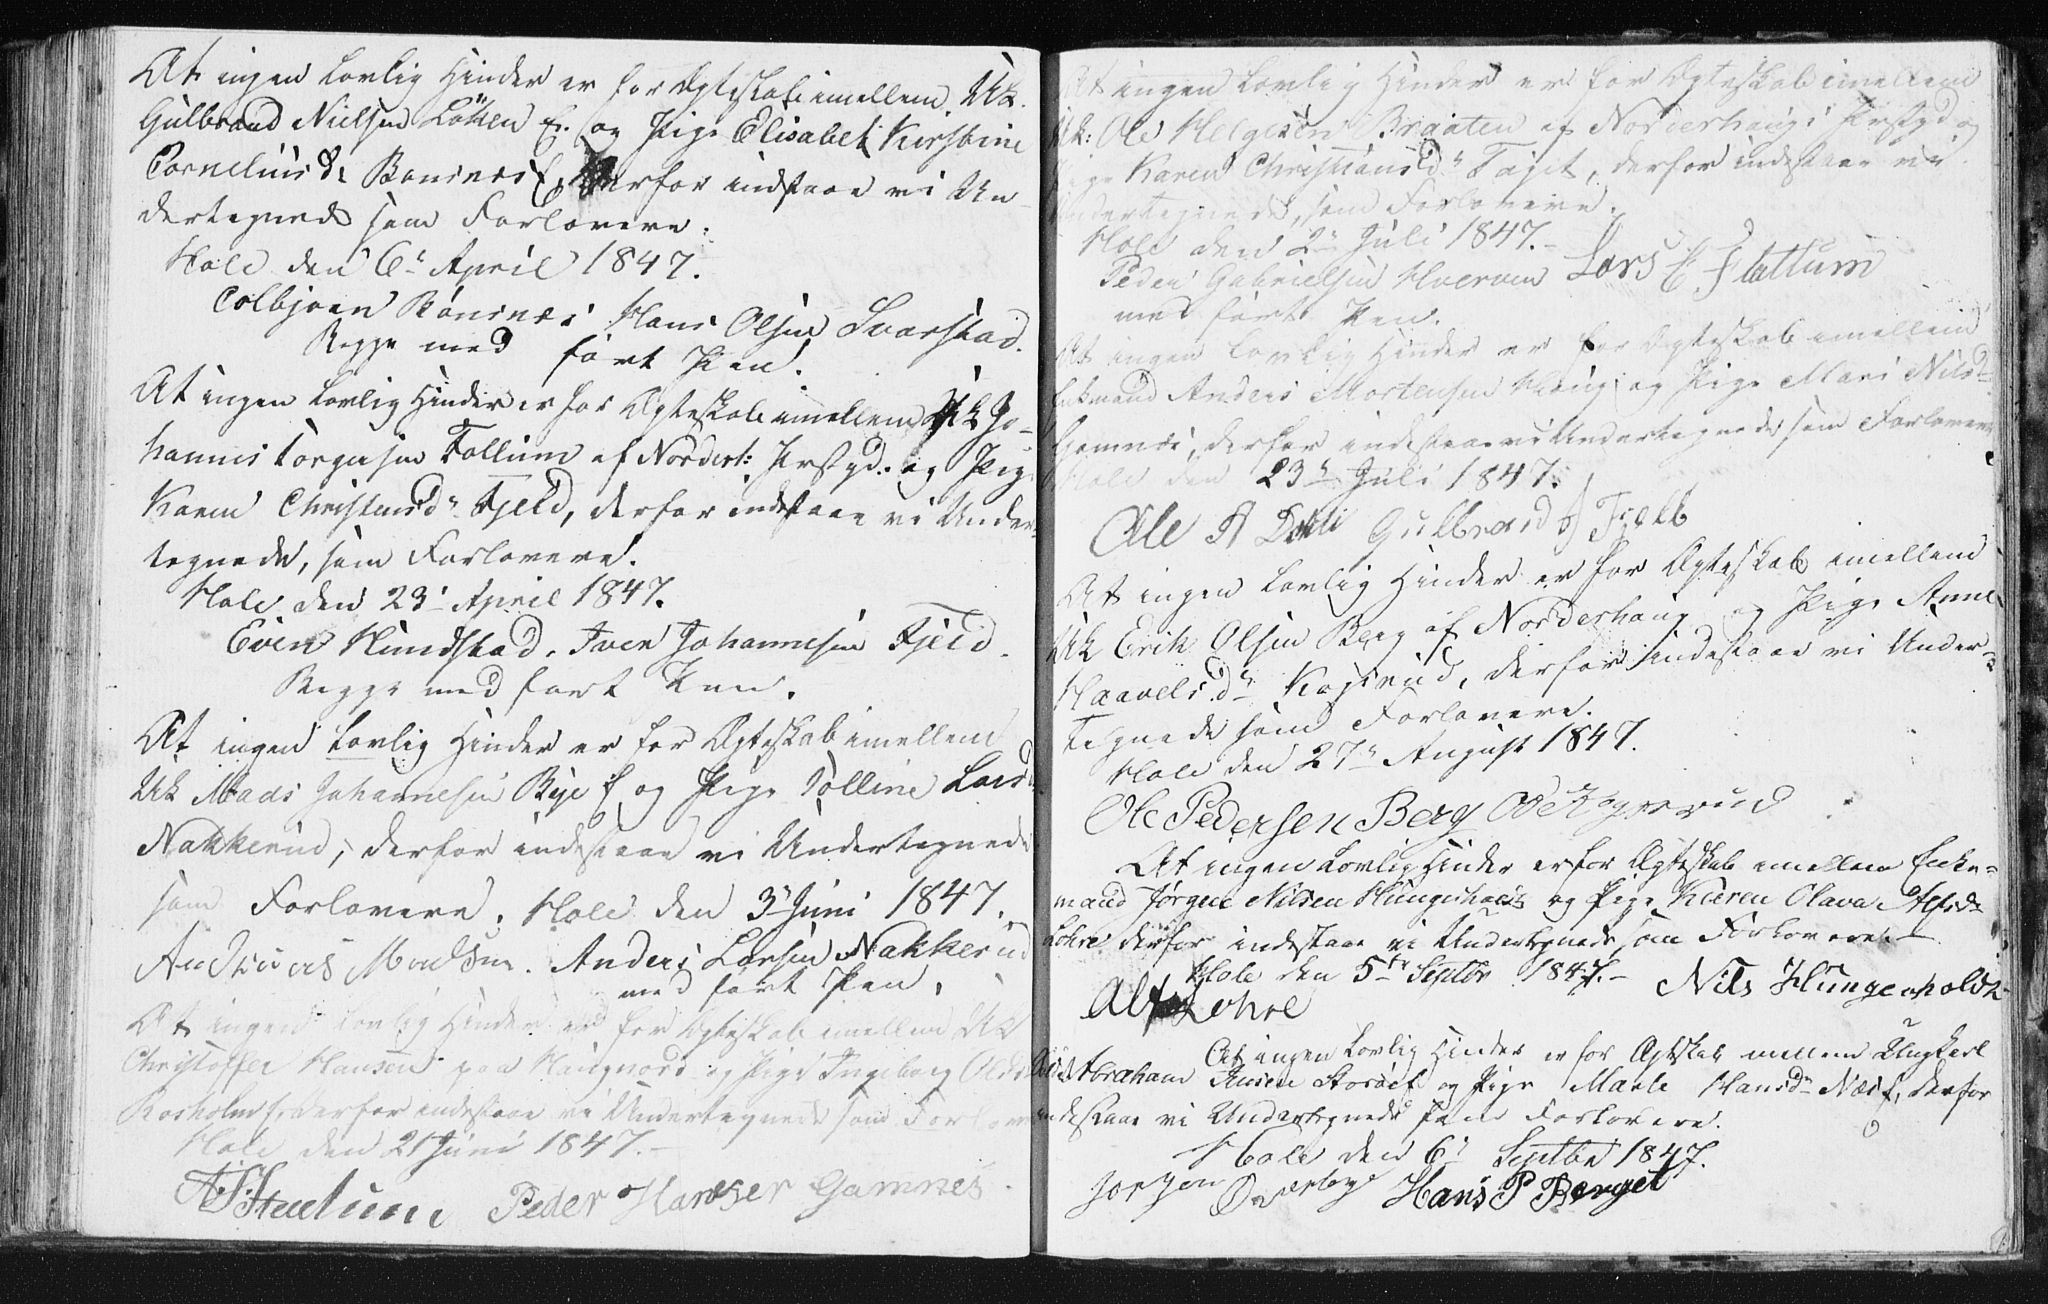 At ingen Lovlig Hinder er for Ægteskab imellem Uk.
Gulbrand Nielsen Löken E. og Pige Elisabet Kirstine
Cornelius d: Bönsnes E, derfor indstaae vi Un-
dertegnede som Forlovere.
Hole den 6te April 1847.
Colbjorn Bönsnes Hans Olsen Svarstad.
Begge med fört Pen.
At ingen Lovlig Hinder er for Ægteskab imellem Uk Jo-
hannes Torgersen Follum af Norderh: Præstgd. og Pige
Karen Christensdr Fjeld, derfor indestaae vi Under-
tegnede, som Forlovere.
Hole den 23 April 1847.
Even Hundstad. Iver Johannesen Fjeld.
Begge med fört Pen.
At ingen Lovlig Hinder er for Ægteskab imellem
Uk Mads Johannesen Bye E og Pige Olline Larsd
Nakkerud, derfor indestaae vi Undertegnede
som Forlovere. Hole den 3 Juni 1847.
Madsen. Anders Larsen Nakkerud
med fört Pen.
At ingen Lovlig Hinder er for Ægteskab imellem Uk
Christoffer Hansen paa og Pige Ingeborg Olsd
Rosholm E, derfor indestaae vi Undertegnede som Forlovere
Hole den 21 Juni 1847.-
Peder Hansen Gamnes.
At ingen Lovlig Hinder er for Ægteskab imellem
Uk: Ole Helgesen Braaten af Norderhaugs Præstgd og
Pige Karen Christiansdr , derfor indestaae vi
Undertegnede, som Forlovere.
Hole den 2 Juli 1847.-
Peder Gabrielsen Hverven Lars E Flattum
med fört Pen.
At ingen Lovlig Hinder er for Ægteskab imellem
Enkmand Anders Mortensen Haug og Pige Mari Nilsd
Gomnes, derfor indestaae vi Undertegnede som Forlovere
Hole den 23 Juli 1847.
Ole A Gulbrand Fjeld
At ingen Lovlig Hinder er for Ægteskab imellem
Uk Erik Olsen Berg af Norderhaug og Pige Anne
Haavelsdr Kogsrud, derfor indestaae vi Under-
tegnede som Forlovere.
Hole den 27 August 1847.
Ole Pedersen Berg
At ingen Lovlig Hinder er for Ægteskab imellem Enke-
mand Jörgen Nilsen Hungerholt og Pige Karen Olava Alfsd
Lohre derfor indestaae vi Undertegnede som Forlovere.-
Hole den 5te Septbr 1847.- Nils Hungerholdt
Alf Lohre
At ingen Lovlig Hinder er for Ægteskab mellem Ungkarl
Abraham Jensen og Pige Marte Hansdr Næs E, derfor
indestaae vi Undertegnede som Forlovere.
Hole den 6 Septbr 1847.
Jorgen Hans P Berget